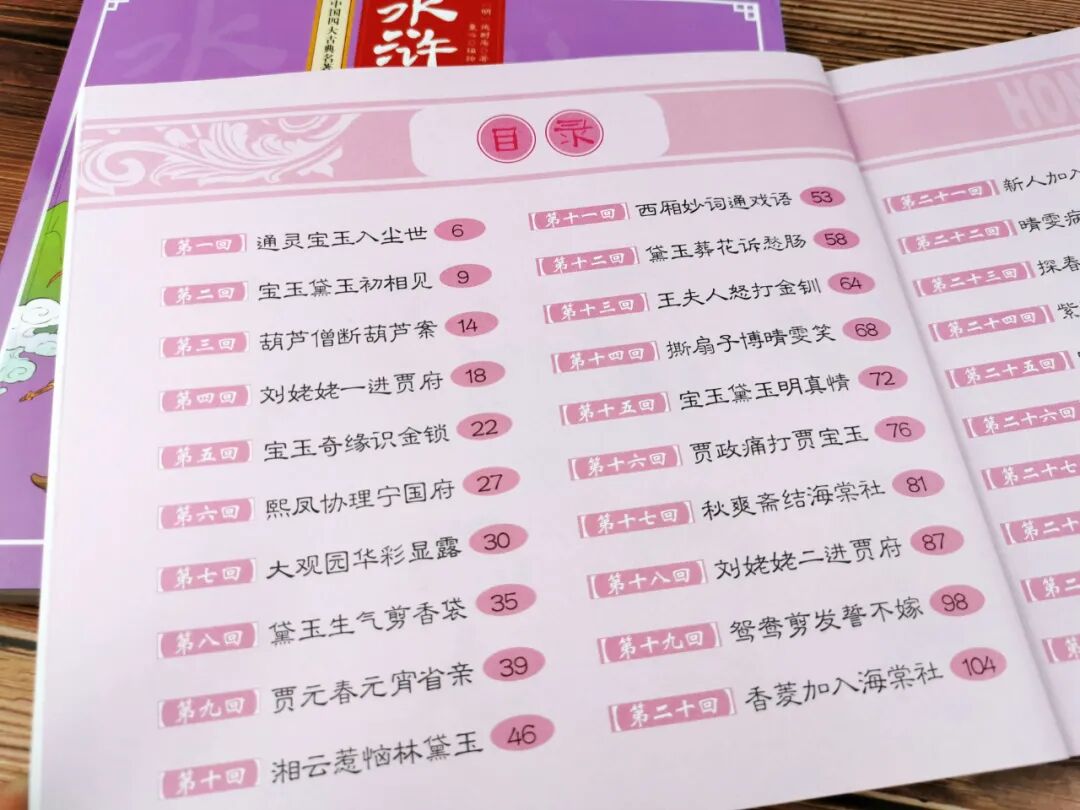 中国四大古典名著
水浒
目录
第一回 通灵宝玉入尘世 6
第二回 宝玉黛玉初相见 9
第三回 葫芦僧断葫芦案 14
第四回 刘姥姥一进贾府 18
第五回 宝玉奇缘识金锁 22
第六回 熙凤协理宁国府 27
第七回 大观园华彩显露 30
第八回 黛玉生气剪香袋 35
第九回 贾元春元宵省亲 39
第十回 湘云惹恼林黛玉 46
第十一回 西厢妙词通戏语 53
第十二回 黛玉葬花诉愁肠 58
第十三回 王夫人怒打金钏 64
第十四回 撕扇子博晴雯笑 68
第十五回 宝玉黛玉明真情 72
第十六回 贾政痛打贾宝玉 76
第十七回 秋爽斋结海棠社 81
第十八回 刘姥姥二进贾府 87
第十九回 鸳鸯剪发誓不嫁 98
第二十回 香菱加入海棠社 104
HON
第二十一回 新人加入
第二十二回 晴雯病
第二十三回 探春
第二十四回 紫
第二十五回
第二十六回
第二十七
第二十
第二
第